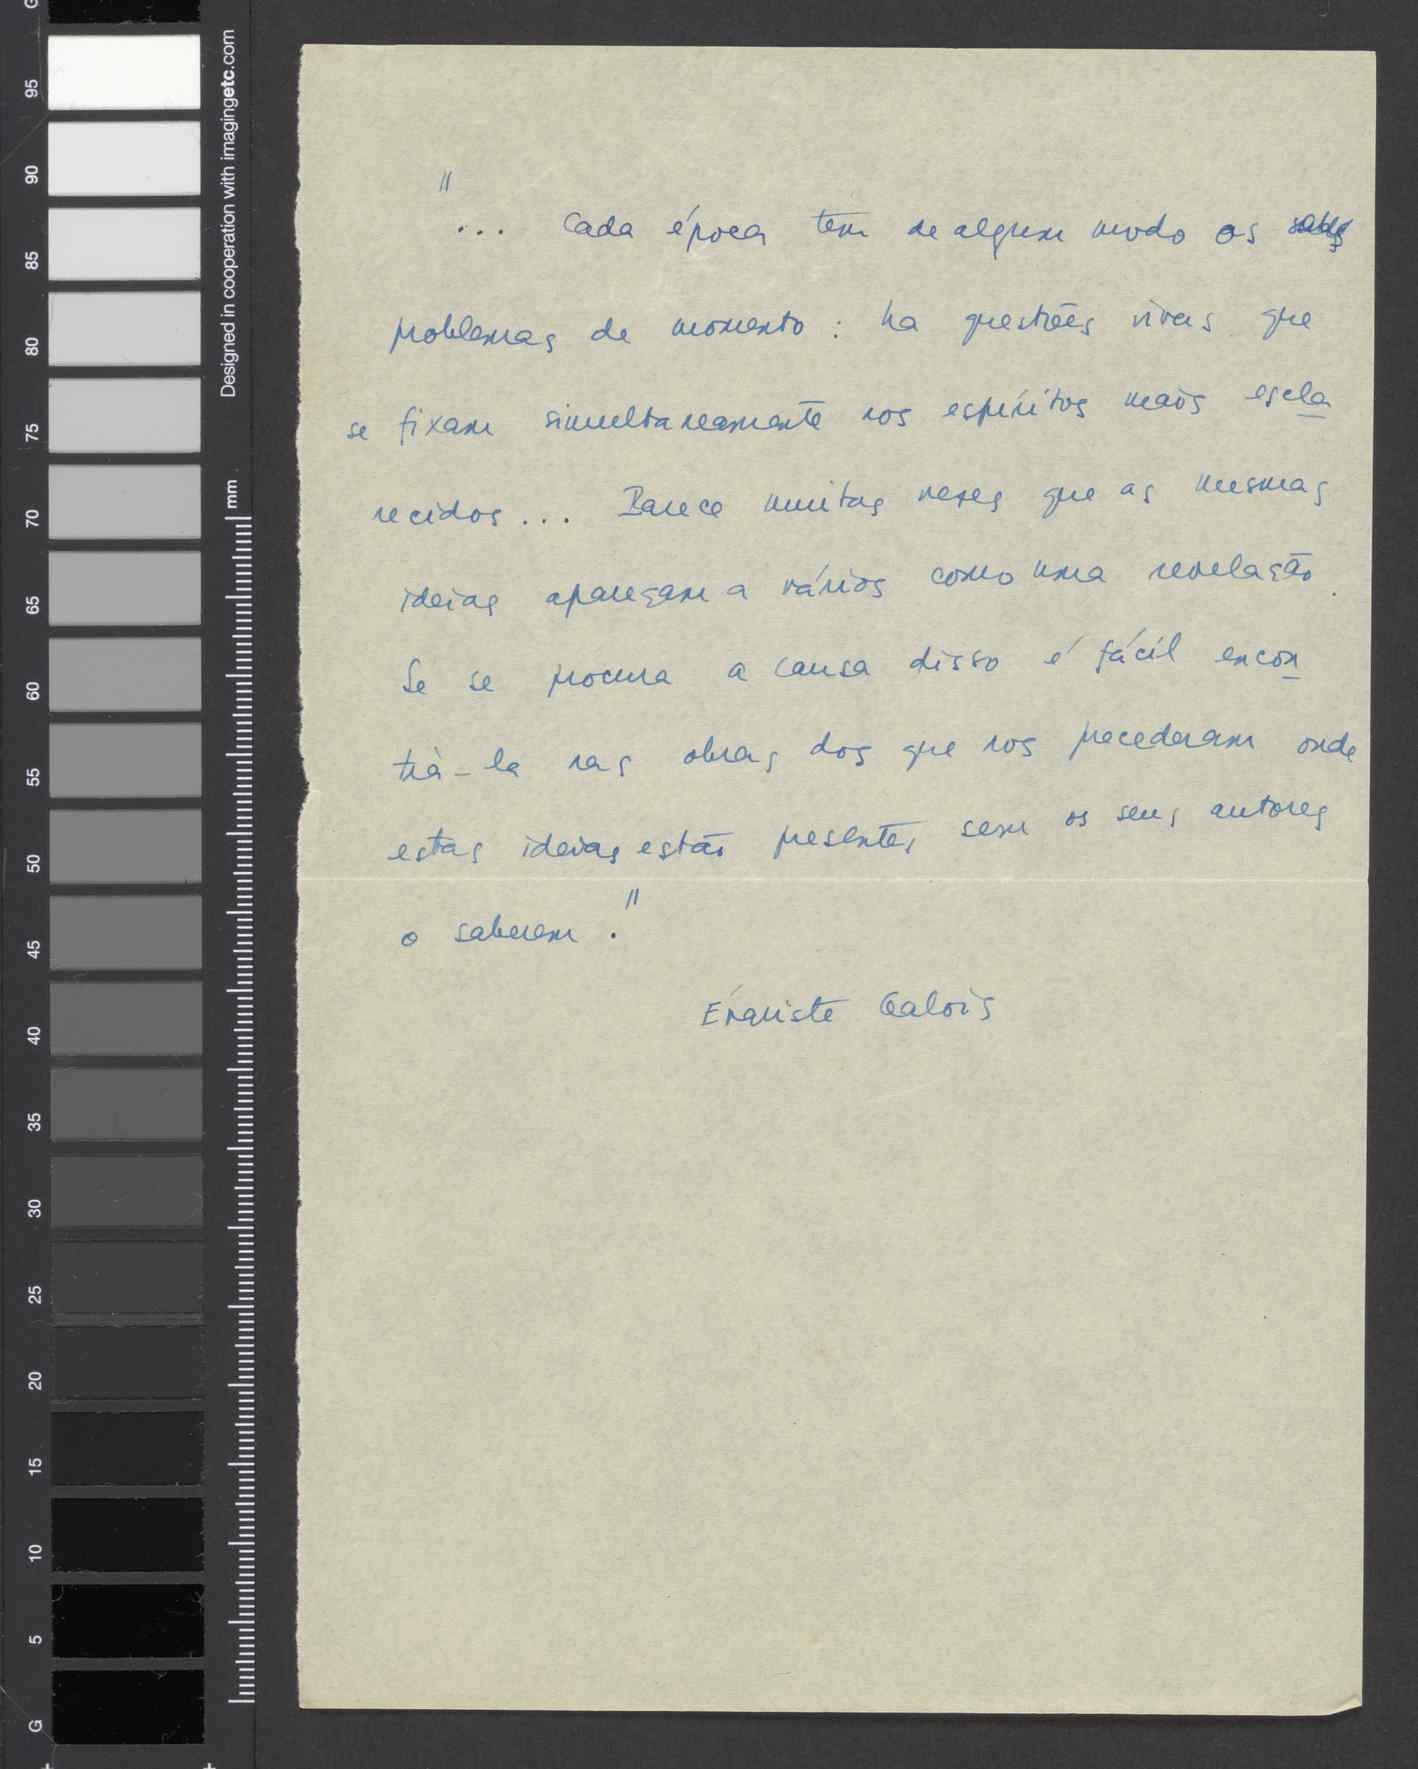 "... Cada época tem de algum modo os
problemas de momento : ha questões vivas que
se fixam simultaneamente nos espíritos mais escla
recidos ... Parece muitas vezes que as mesmas
ideias apareçam a vários como uma revelação.
Se se procura a causa disso é fácil encon
trà-la nas obras dos que nos precederam onde
estas ideias estão presentes sem os seus autores
o saberem ."
Évariste Galois
Designed in cooperation with imagingetc.com
mm
95
90
85
80
75
70
65
60
55
50
45
40
35
30
25
20
15
10
5
G